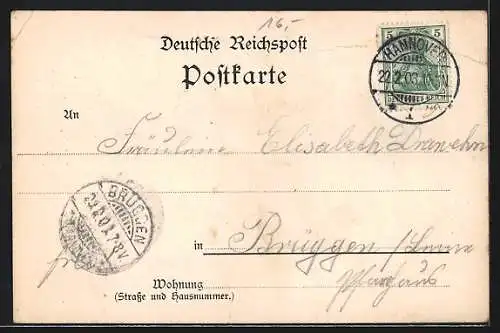 16,-
Deutsche Reichspost
Postkarte
5 5
HANNOVER
22.2.03
* 1
An
Fräulein Elisabeth Drawehn
BRÜGGEN
in Brüggen / Leine
Pfarrhaus
Wohnung
(Straße und Hausnummer.)